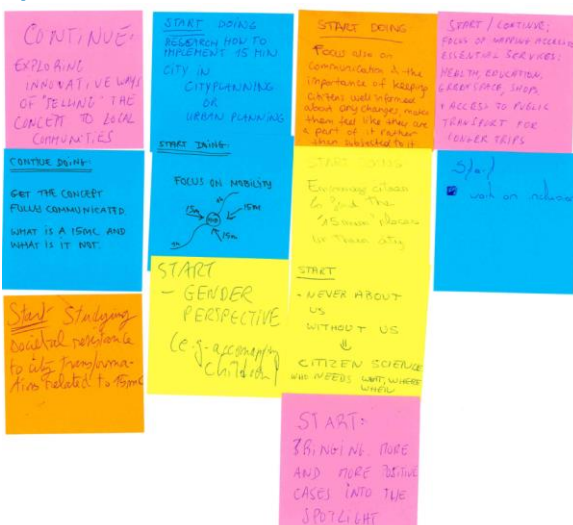 CONTINUE:
EXPLORING
INNOVATIVE WAYS
OF "SELLING" THE
CONCEPT TO LOCAL
COMMUNITIES
START DOING
RESEARCH HOW TO
IMPLEMENT 15 MIN
CITY IN
CITYPLANNING
OR
URBAN PLANNING
START DOING
Focus also on
communication & the
importance of keeping
citizens well informed
about any changes, make
them feel like they are
a part of it rather
than subjected to it
START / CONTINUE:
FOCUS ON MAPPING ACCESS TO
ESSENTIAL SERVICES:
HEALTH, EDUCATION,
GREEN SPACE, SHOPS
+ ACCESS TO PUBLIC
TRANSPORT FOR
LONGER TRIPS
CONTINUE DOING:
GET THE CONCEPT
FULLY COMMUNICATED
WHAT IS A 15MC AND
WHAT IS IT NOT.
START DOING:
FOCUS ON MOBILITY
15m
15m
15m
START DOING
Encourage citizen
to find the
"15 min" places
in their city
Start
work on inclusion
Start Studying
societal resistance
to city transforma-
tions related to 15mC
START
- GENDER
PERSPECTIVE
(e.g. accompanying
children)
START
- NEVER ABOUT
US
WITHOUT US
⇓
CITIZEN SCIENCE
WHO NEEDS WHAT, WHERE
WHEN
START:
BRINGING MORE
AND MORE POSITIVE
CASES INTO THE
SPOTLIGHT